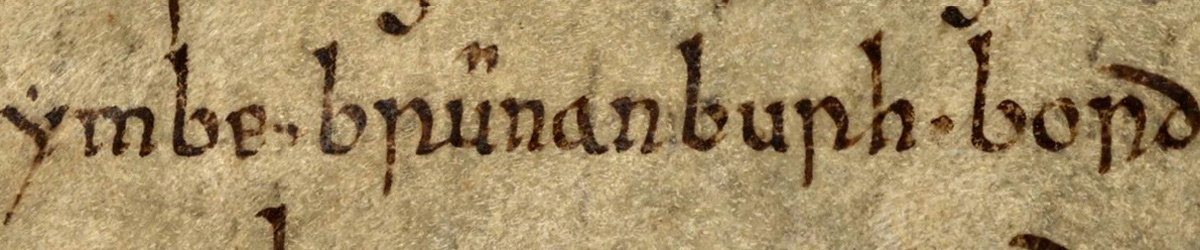 ymbe· brunnanburh· bord